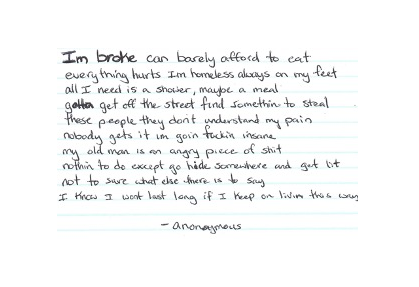 Im broke can barely afford to eat
everything hurts Im homeless always on my feet
all I need is a shower, maybe a meal
gotta get off the street find somethin to steal
these people they dont understand my pain
nobody gets it im goin fuckin insane
my old man is an angry piece of shit
nothin to do except go hide somewhere and get lit
not to sure what else there is to say
I know I wont last long if I keep on livin this way
- anonoymous